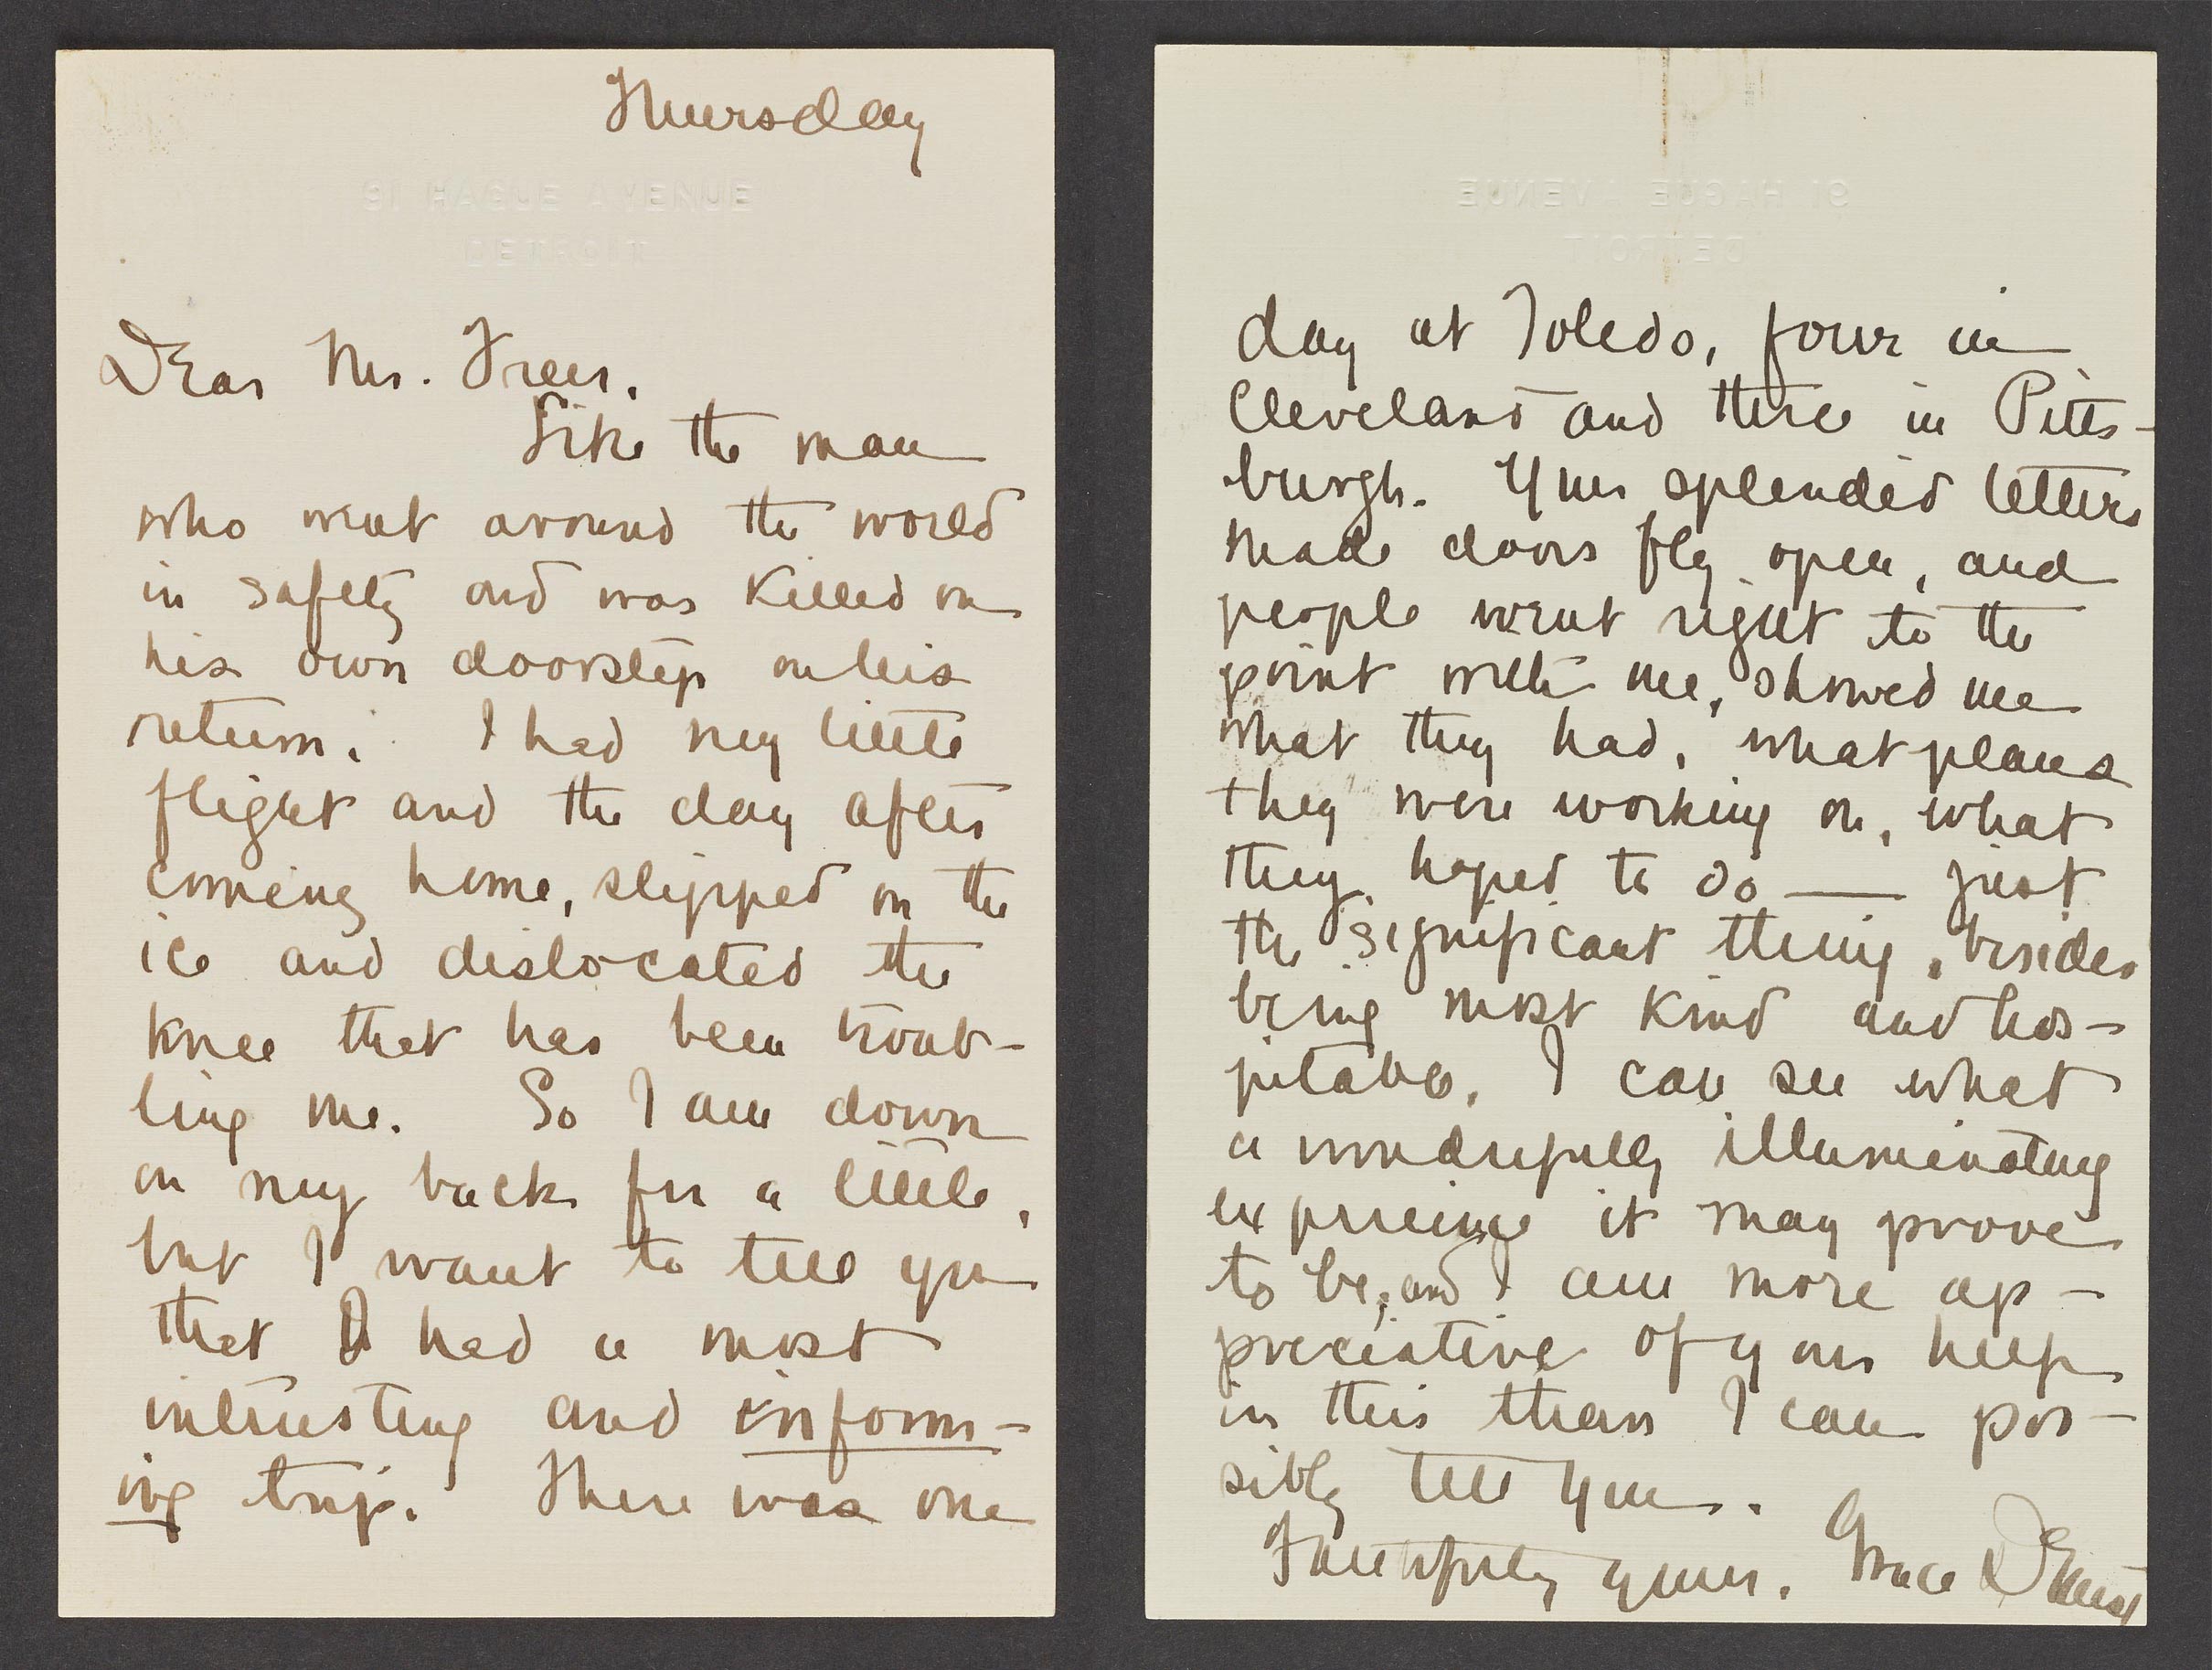 Thursday
91 HAGUE AVENUE
DETROIT
Dear Mr. Freer,
Like the man
who went around the world
in safety and was killed on
his own doorstep on his
return. I had my little
flight and the day after
coming home, slipped on the
ice and dislocated the
knee that has been troub-
ling me. So I am down
on my back for a little,
but I want to tell you
that I had a most
interesting and inform-
ing trip. There was one
91 HAGUE AVENUE
DETROIT
day at Toledo, four in
Cleveland and three in Pitts-
burgh. Your splendid letters
made doors fly open, and
people went right to the
point with me, showed me
what they had, what plans
they were working on, what
they hoped to do — just
the significant thing, besides
being most kind and hos-
pitable. I can see what
a wonderfully illuminating
experience it may prove
to be, and I am more ap-
preciative of your help
in this than I can pos-
sibly tell you.
Faithfully yours, Grace